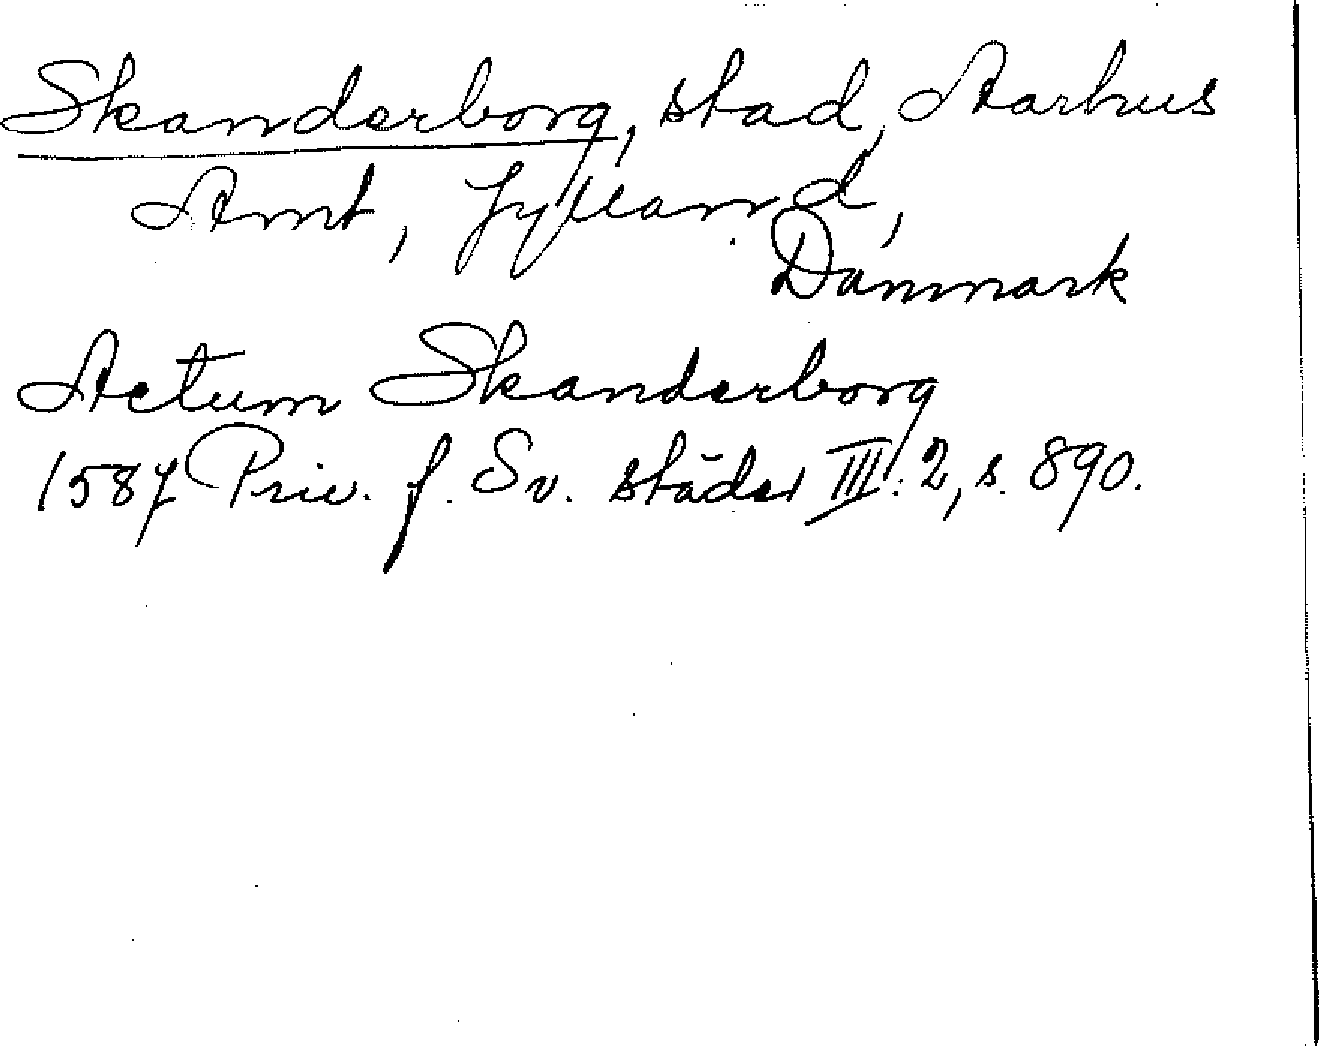 Skanderborg, stad, Aarhus
Amt, Jylland,
Danmark
Actum Skanderborg
1587 Priv. f. Sv. städer III: 2, s. 890.